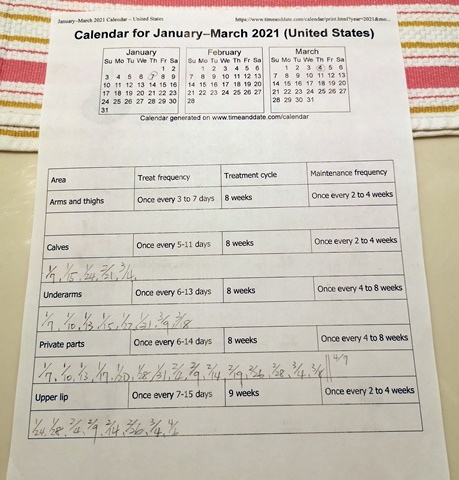 January–March 2021 Calendar – United States
https://www.timeanddate.com/calendar/print.html?year=2021&mo...
Calendar for January–March 2021 (United States)
January February March
Su Mo Tu We Th Fr Sa Su Mo Tu We Th Fr Sa Su Mo Tu We Th Fr Sa
1 2 1 2 3 4 5 6 1 2 3 4 5 6
3 4 5 6 7 8 9 7 8 9 10 11 12 13 7 8 9 10 11 12 13
10 11 12 13 14 15 16 14 15 16 17 18 19 20 14 15 16 17 18 19 20
17 18 19 20 21 22 23 21 22 23 24 25 26 27 21 22 23 24 25 26 27
24 25 26 27 28 29 30 28 28 29 30 31
31
Calendar generated on www.timeanddate.com/calendar
Area Treat frequency Treatment cycle Maintenance frequency
Arms and thighs Once every 3 to 7 days 8 weeks Once every 2 to 4 weeks
Calves Once every 5-11 days 8 weeks Once every 2 to 4 weeks
1/7, 1/15, 1/24, 3/4
Underarms Once every 6-13 days 8 weeks Once every 4 to 8 weeks
1/7, 1/10, 1/13, 1/15, 1/17, 1/21
Private parts Once every 6-14 days 8 weeks Once every 4 to 8 weeks
1/7, 1/10, 1/13, 1/17, 1/28, 1/31, 2/4, 2/9, 2/14, 2/19, 2/26, 2/28, 3/4, 3/8 4/7
Upper lip Once every 7-15 days 9 weeks Once every 2 to 4 weeks
1/24, 1/28, 2/4, 2/9, 2/14, 2/26, 3/4